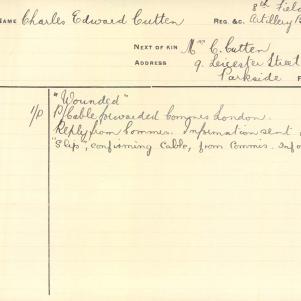 8th Field
NAME Charles Edward Cutten REG. &C. Artillery
NEXT OF KIN Mrs C. Cutten
ADDRESS 9. Leicester Street
Parkside
"Wounded"
1/p Cable forwarded London.
Reply from Commes. Information sent
"Slip", confirming Cable, from Commis. Info